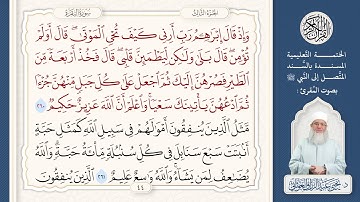 الجزء الثالث
سورة البقرة
وَإِذْ قَالَ إِبْرَٰهِۦمُ رَبِّ أَرِنِى كَيْفَ تُحْىِ ٱلْمَوْتَىٰ ۖ قَالَ أَوَلَمْ
تُؤْمِن ۖ قَالَ بَلَىٰ وَلَٰكِن لِّيَطْمَئِنَّ قَلْبِى ۖ قَالَ فَخُذْ أَرْبَعَةً مِّنَ
ٱلطَّيْرِ فَصُرْهُنَّ إِلَيْكَ ثُمَّ ٱجْعَلْ عَلَىٰ كُلِّ جَبَلٍ مِّنْهُنَّ جُزْءًا
ثُمَّ ٱدْعُهُنَّ يَأْتِينَكَ سَعْيًا ۚ وَٱعْلَمْ أَنَّ ٱللَّهَ عَزِيزٌ حَكِيمٌ ٢٦٠
مَّثَلُ ٱلَّذِينَ يُنفِقُونَ أَمْوَٰلَهُمْ فِى سَبِيلِ ٱللَّهِ كَمَثَلِ حَبَّةٍ
أَنۢبَتَتْ سَبْعَ سَنَابِلَ فِى كُلِّ سُنۢبُلَةٍ مِّا۟ئَةُ حَبَّةٍ ۗ وَٱللَّهُ
يُضَٰعِفُ لِمَن يَشَآءُ ۗ وَٱللَّهُ وَٰسِعٌ عَلِيمٌ ٢٦١ ٱلَّذِينَ يُنفِقُونَ
٤٤
القرآن الكريم
الختمة التعليمية
المسندة بالسند
المتصل إلى النبي ﷺ
بصوت المقرئ: